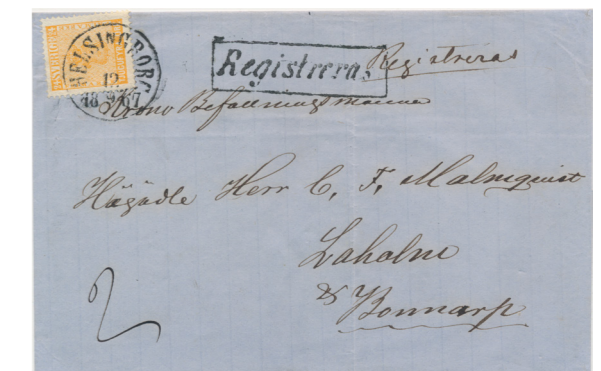 HELSINGBORG
12
18 67
Registreras Registreras
Krono Befallningsmannen
Högädle Herr C. F. Malmquist
Laholm
&
Bonnarp
2